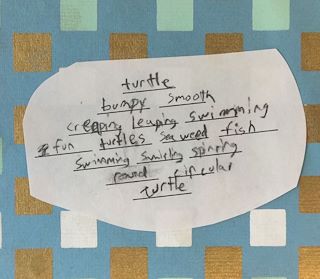 turtle
bumpy smooth
creeping leaping swimming
fun turtles sea weed fish
swimming swirling spinning
round circular
turtle